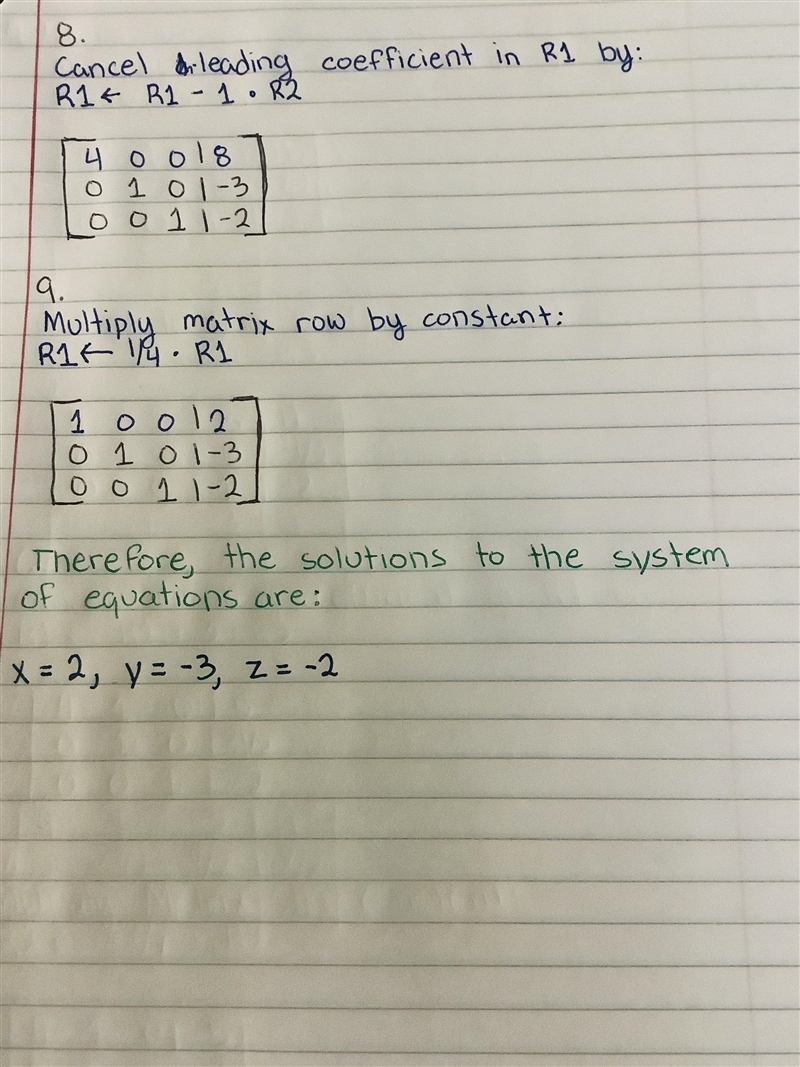 8.
Cancel leading coefficient in R1 by:
R1 ← R1 - 1 • R2
4 0 0 | 8
0 1 0 | -3
0 0 1 | -2
9.
Multiply matrix row by constant:
R1 ← 1/4 • R1
1 0 0 | 2
0 1 0 | -3
0 0 1 | -2
Therefore, the solutions to the system
of equations are:
x = 2, y = -3, z = -2